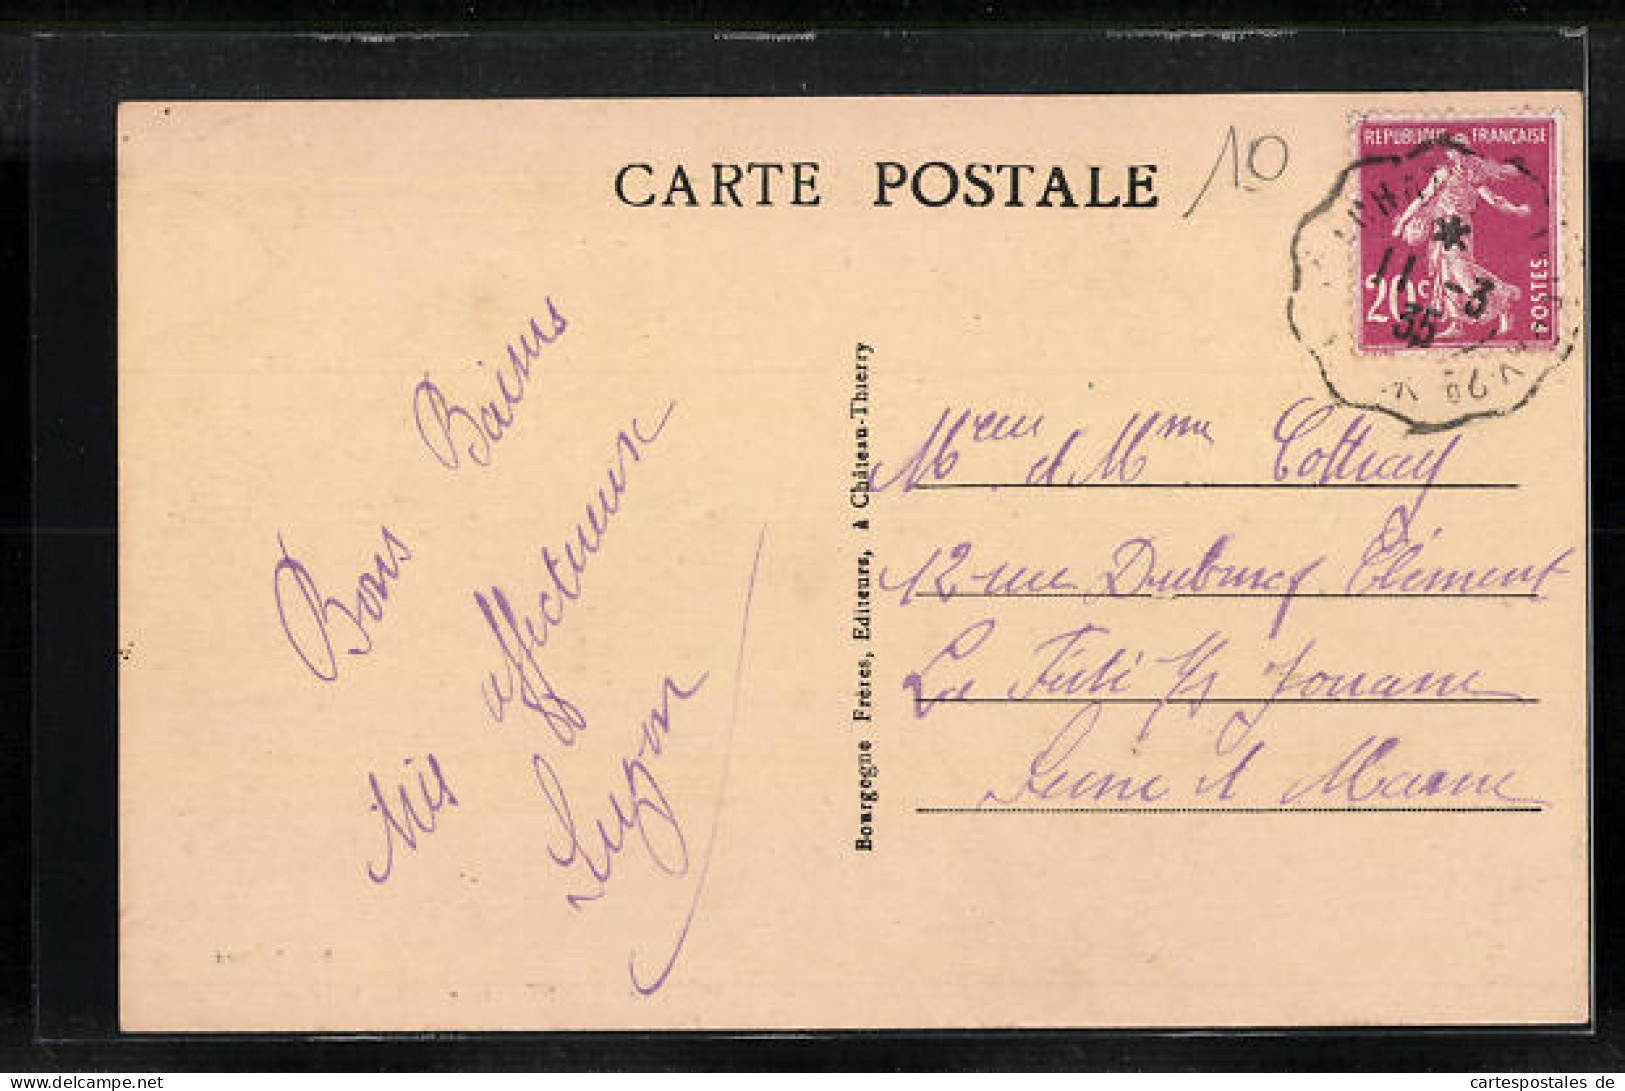 CARTE POSTALE
10
REPUBLIQUE FRANÇAISE
20c
POSTES
11 -3
35
Bons Baisers
affectueux
Bourgogne Frères, Editeurs, à Château-Thierry
et Mme Cottray
12 rue Clément
La Ferté s/s Jouarre
Seine et Marne
cartespostales de